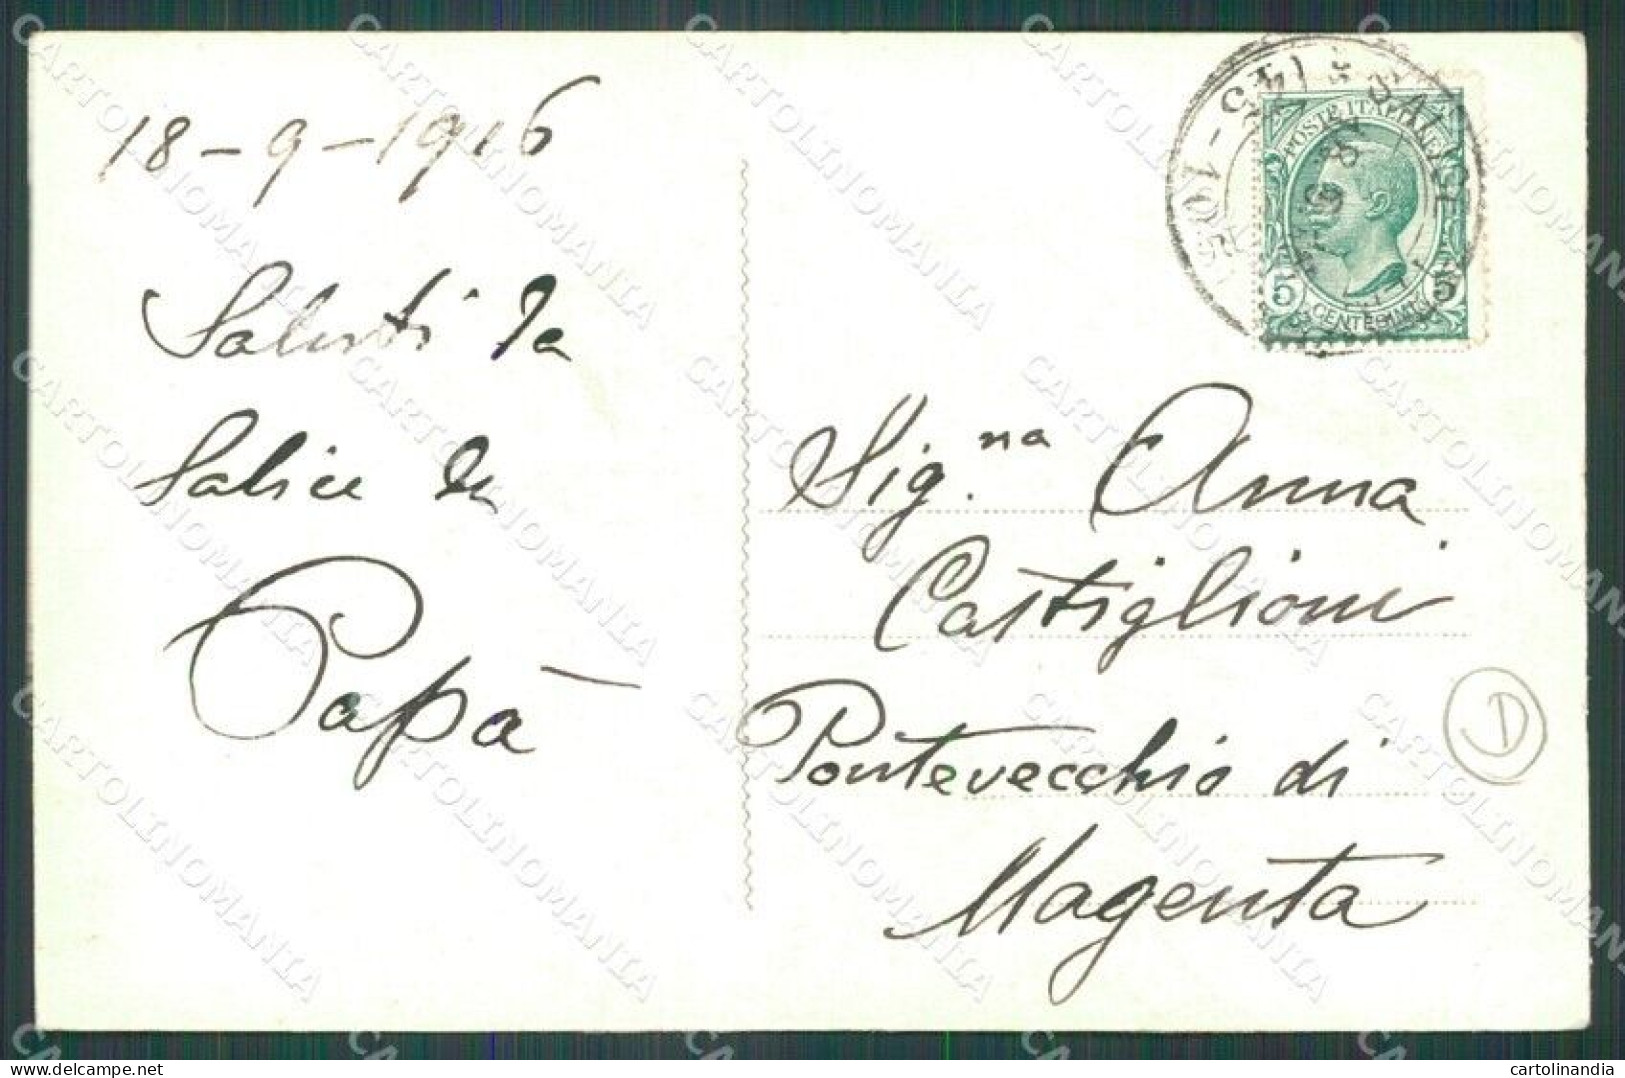 18-9-1916
Saluti da
Salice da
Papà
POSTE ITALIANE
5 CENTESIMI 5
Sig.na Anna
Castiglioni
Pontevecchio di
Magenta
D
CARTOLINOMANIA
delcampe.net
cartolinandia